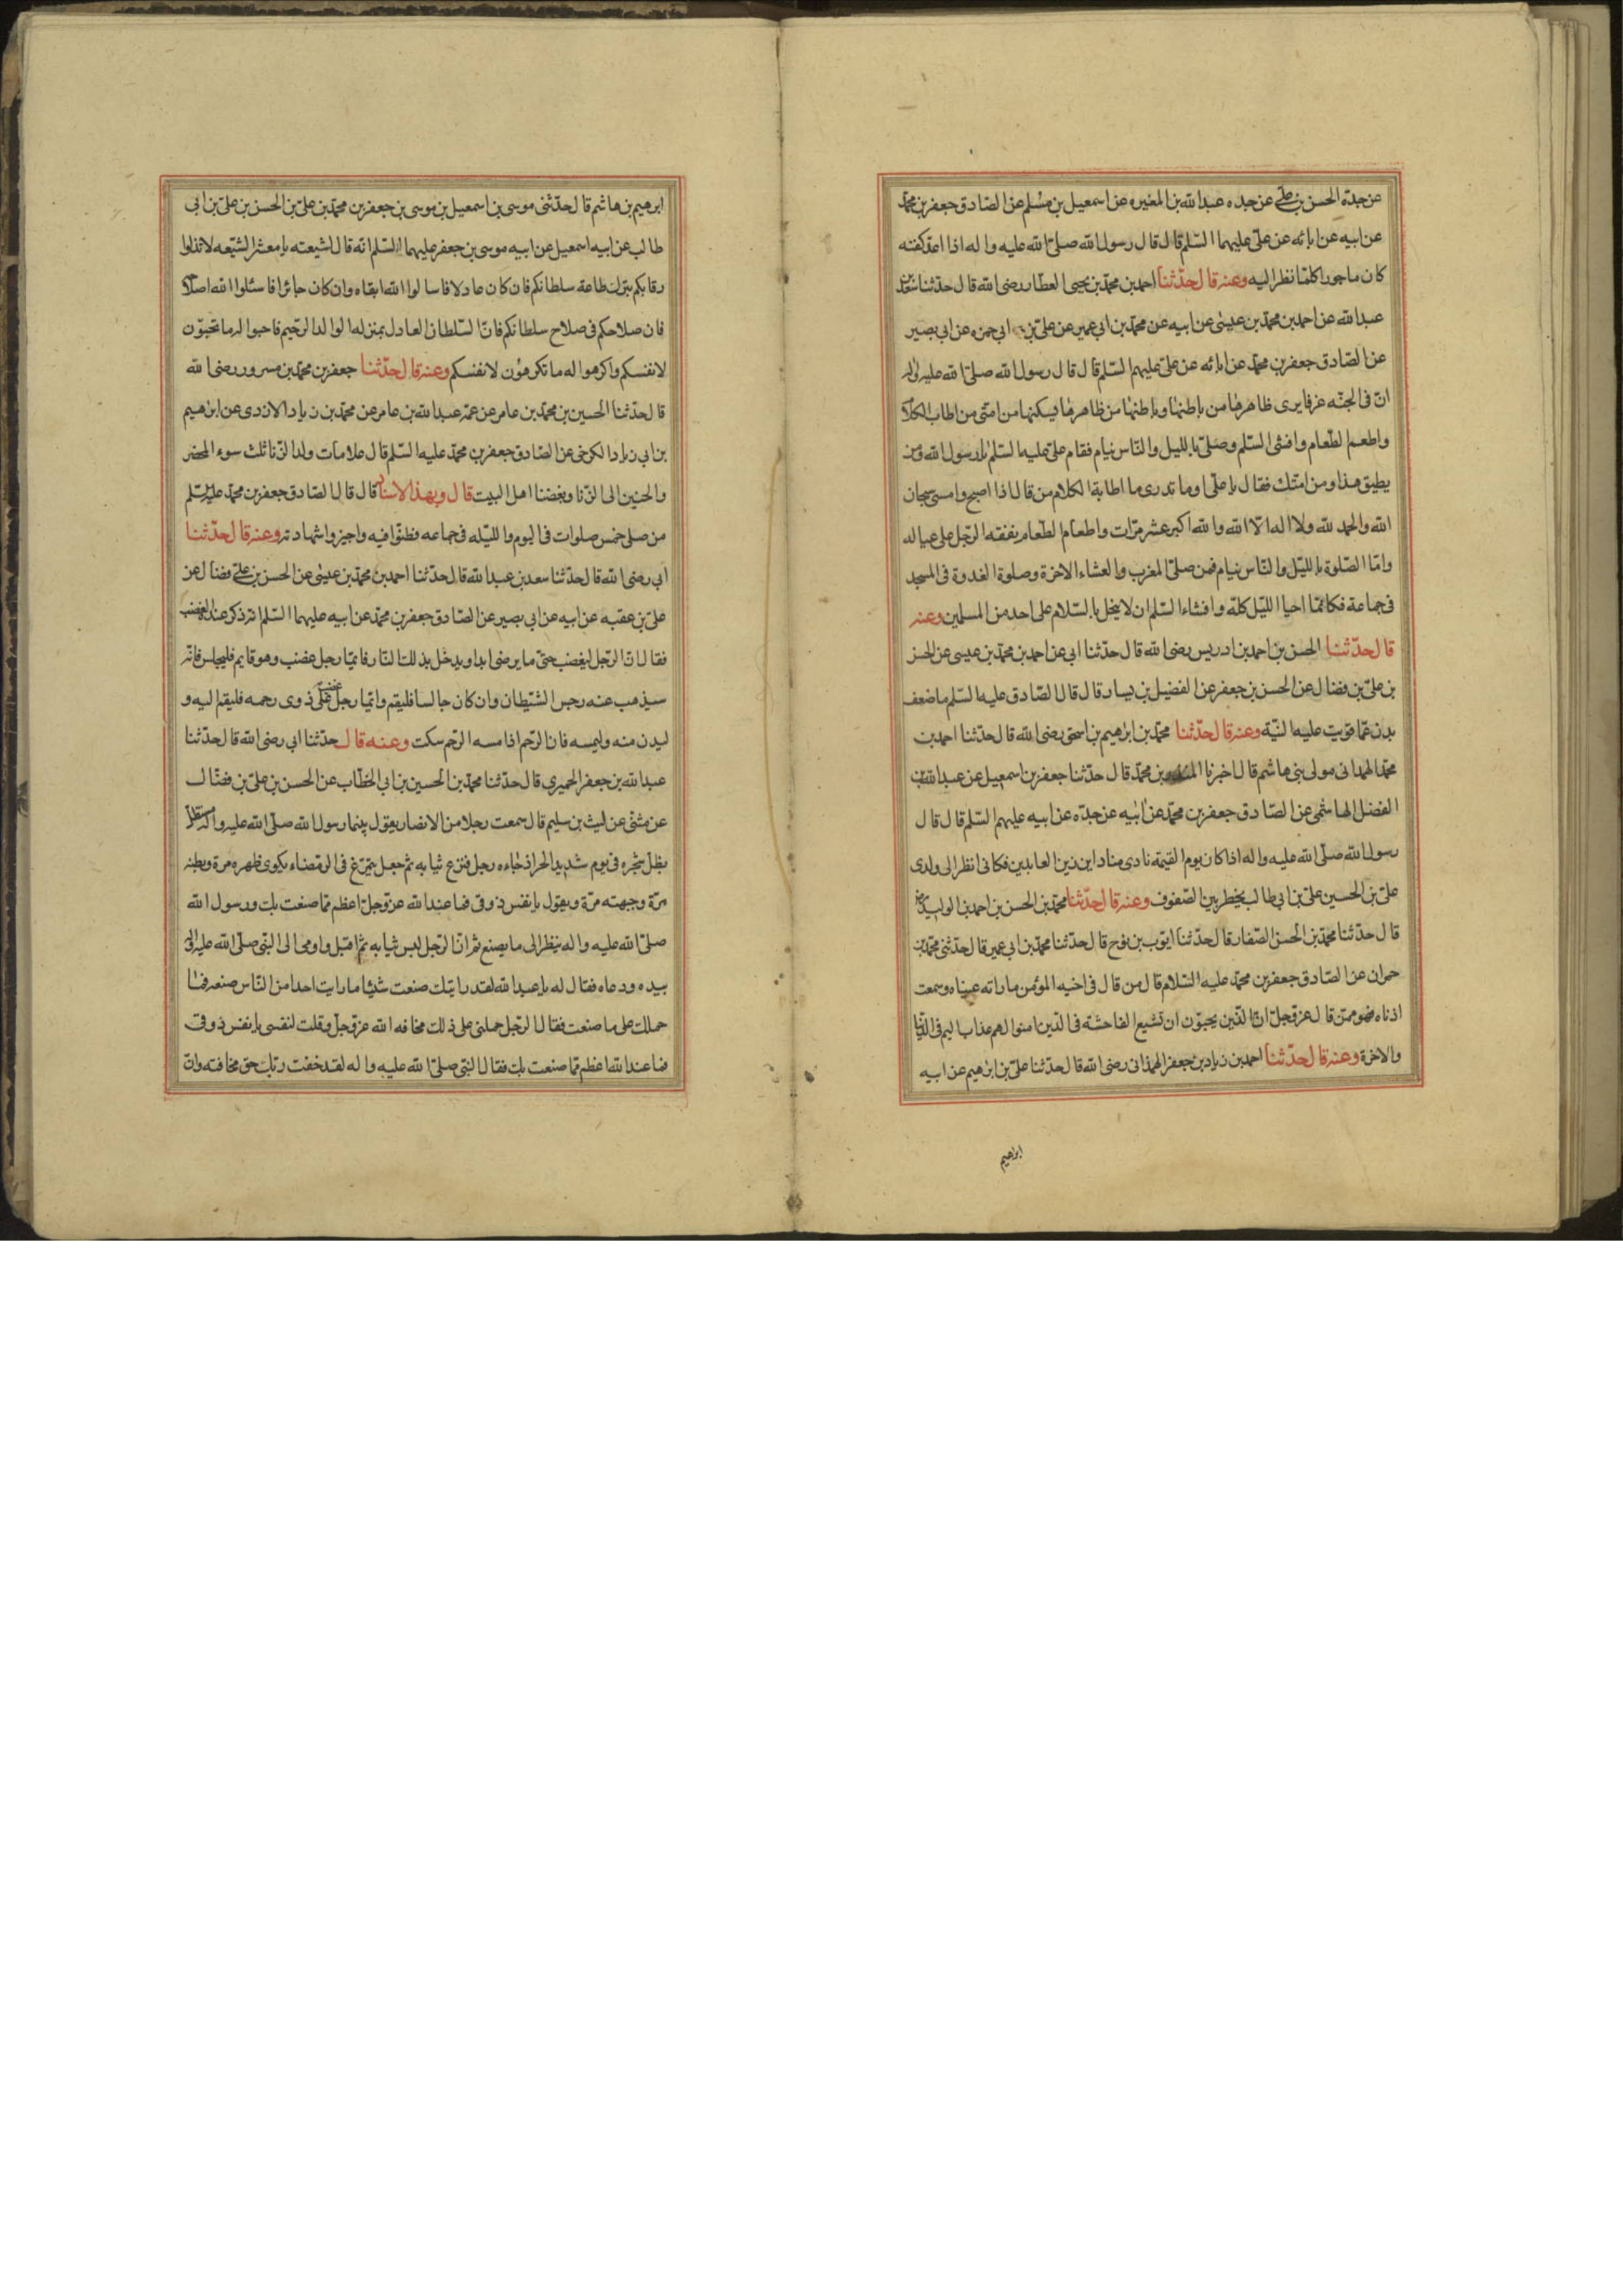 عن جدّه الحسن بن علي عن جده عبد الله بن المغيره عن اسمعيل بن مسلم عن الصّادق جعفر بن محمّد
عن ابيه عن ابائه عن علىّ عليهما السّلم قال قال رسول الله صلىّ الله عليه واله اذا اعدّ كفنه
كان ماجورا كلمّا نظر اليه وعنه قال حدّثنا احمد بن محمّد بن يحيى العطّار رضى الله قال حدّثنا سعد بن
عبد الله عن احمد بن محمّد بن عيسى عن ابيه عن محمّد بن ابي عمير عن علىّ بن ابي حمزه عن ابي بصير
عن الصّادق جعفر بن محمّد عن ابائه عن علىّ عليهم السّلم قال قال رسول الله صلىّ الله عليه واله
انّ فى الجنّه غرفا يرى ظاهرها من باطنها وباطنها من ظاهرها يسكنها من امتى من اطاب الكلام
واطعم الطّعام وافشى السّلم وصلىّ بالليل والنّاس نيام فقام علىّ عليه السّلم يا رسول الله ومن
يطيق هذا ومن امتك فقال يا علىّ اوما تدرى ما اطابة الكلام من قال اذا اصبح وامسى سبحان
الله والحمد لله ولا اله الّا الله والله اكبر عشر مرّات واطعام الطّعام نفقة الرّجل على عياله
وامّا الصّلوة بالليّل والنّاس نيام فمن صلىّ المغرب والعشاء الاخرة وصلوة الغدوة فى المسجد
فى جماعة فكانمّا احيا الليّل كلّه وافشاء السّلم ان لا يبخل بالسّلام على احد من المسلمين وعنه
قال حدّثنا الحسن بن احمد بن ادريس رضى الله قال حدّثنا ابى عن احمد بن محمّد بن عيسى عن الحسن
بن علىّ بن فضال عن الحسن بن جعفر عن الفضيل بن يسار قال قال الصّادق عليه السّلم ما ضعف
بدن عمّا قويت عليه النّية وعنه قال حدّثنا محمّد بن ابرهيم بن اسحق رضى الله قال حدّثنا احمد بن
محمّد الهمدانى مولى بنى هاشم قال اخبرنا المنذر بن محمّد قال حدّثنا جعفر بن اسمعيل عن عبد الله بن
الفضل الهاشمى عن الصّادق جعفر بن محمّد عن ابيه عن جدّه عن ابيه عليهم السّلم قال قال
رسول الله صلّى الله عليه واله اذا كان يوم القيمة نادى مناد اين زين العابدين فكانى انظر الى ولدى
علىّ بن الحسين علىّ بن ابي طالب يخطر بين الصّفوف وعنه قال حدّثنا محمّد بن الحسن بن احمد بن الوليد
قال حدّثنا محمّد بن الحسن الصّفار قال حدّثنا ايوّب بن نوح قال حدّثنا محمّد بن ابي عمير قال حدّثنى محمّد بن
حمران عن الصّادق جعفر بن محمّد عليه السّلام قال من قال فى اخيه المؤمن ما راته عيناه وسمعت
اذناه فهو ممّن قال عزّ وجلّ انّ الذّين يحبوّن ان تشيع الفاحشة فى الذّين امنوا لهم عذاب اليم فى الدّنيا
والاخرة وعنه قال حدّثنا احمد بن زياد بن جعفر الهمدانى رضى الله قال حدّثنا علىّ بن ابرهيم عن ابيه
ابراهيم
ابرهيم بن هاشم قال حدّثنى موسى بن اسمعيل بن موسى بن جعفر بن محمّد بن علىّ بن الحسن بن علىّ بن ابى
طالب عن ابيه اسمعيل عن ابيه موسى بن جعفر عليهما السّلم انّه قال لشيعته يا معشر الشّيعه لا تذلوا
رقابكم بترك طاعة سلطانكم فان كان عادلا فاسالوا الله ابقاه وان كان جائرا فاسئلوا الله اصلاحه
فان صلاحكم فى صلاح سلطانكم فانّ السّلطان العادل بمنزله الوالد الرّحيم فاحبوا له ما تحبوّن
لانفسكم واكرهوا له ما تكرهون لانفسكم وعنه قال حدّثنا جعفر بن محمّد بن مسرور رضى الله
قال حدّثنا الحسين بن محمّد بن عامر عن عمّه عبد الله بن عامر عن محمّد بن زياد الازدى عن ابرهيم
بن ابي زياد الكرخى عن الصّادق جعفر بن محمّد عليه السّلم قال علامات ولد الزّنا ثلث سوء المحضر
والحنين الى الزّنا وبغضنا اهل البيت قال وبهذا الاسناد قال قال الصّادق جعفر بن محمّد عليه السّلم
من صلى خمس صلوات فى اليوم والليّله فى جماعه فظنوّا فيه واجيزوا شهادته وعنه قال حدّثنا
ابي رضى الله قال حدّثنا سعد بن عبد الله قال حدّثنا احمد بن محمّد بن عيسى عن الحسن بن علي فضال عن
علىّ بن عقبه عن ابيه عن ابي بصير عن الصّادق جعفر بن محمّد عن ابيه عليهما السّلم انه ذكر عنده الغضب
فقال انّ الرّجل ليغضب حتّى ما يرضى ابدا ويدخل بذلك النّار فايمّا رجل غضب وهو قايم فليجلس فانّه
سيذهب عنه رجس الشّيطان وان كان جالسا فليقم وايمّا رجل غضب على ذوى رحمه فليقم اليه و
ليدن منه وليمسه فان الرّحم اذا مسه الرّحم سكت وعنه قال حدّثنا ابي رضى الله قال حدّثنا
عبد الله بن جعفر الحميرى قال حدّثنا محمّد بن الحسين بن ابي الخطّاب عن الحسن بن علىّ بن فضّال
عن مثنّى عن ليث بن سليم قال سمعت رجلا من الانصار يقول بينما رسول الله صلّى الله عليه واله مستظلّ
بظلّ شجره فى يوم شديد الحرّ اذ جاءه رجل فنزع ثيابه ثم جعل يتمرّغ فى الرّمضاء يكوى ظهره مرة وبطنه
مرّة وجبهته مرّة ويقول يا نفس ذوقى فما عند الله عزّ وجلّ اعظم ممّا صنعت بك ورسول الله
صلىّ الله عليه واله ينظر الى ما يصنع ثم انّ الرّجل لبس ثيابه ثم اقبل واومى الى النّبى صلّى الله عليه واله
بيده ودعاه فقال له يا عبد الله لقد رايتك صنعت شيئا ما رايت احدا من النّاس صنعه فما
حملك على ما صنعت فقال الرّجل حملنى على ذلك مخافه الله عزّ وجلّ وقلت لنفسى يا نفس ذوقى
فما عند الله اعظم ممّا صنعت بك فقال النّبى صلىّ الله عليه واله لقد خفت ربّك حق مخافته وانّ